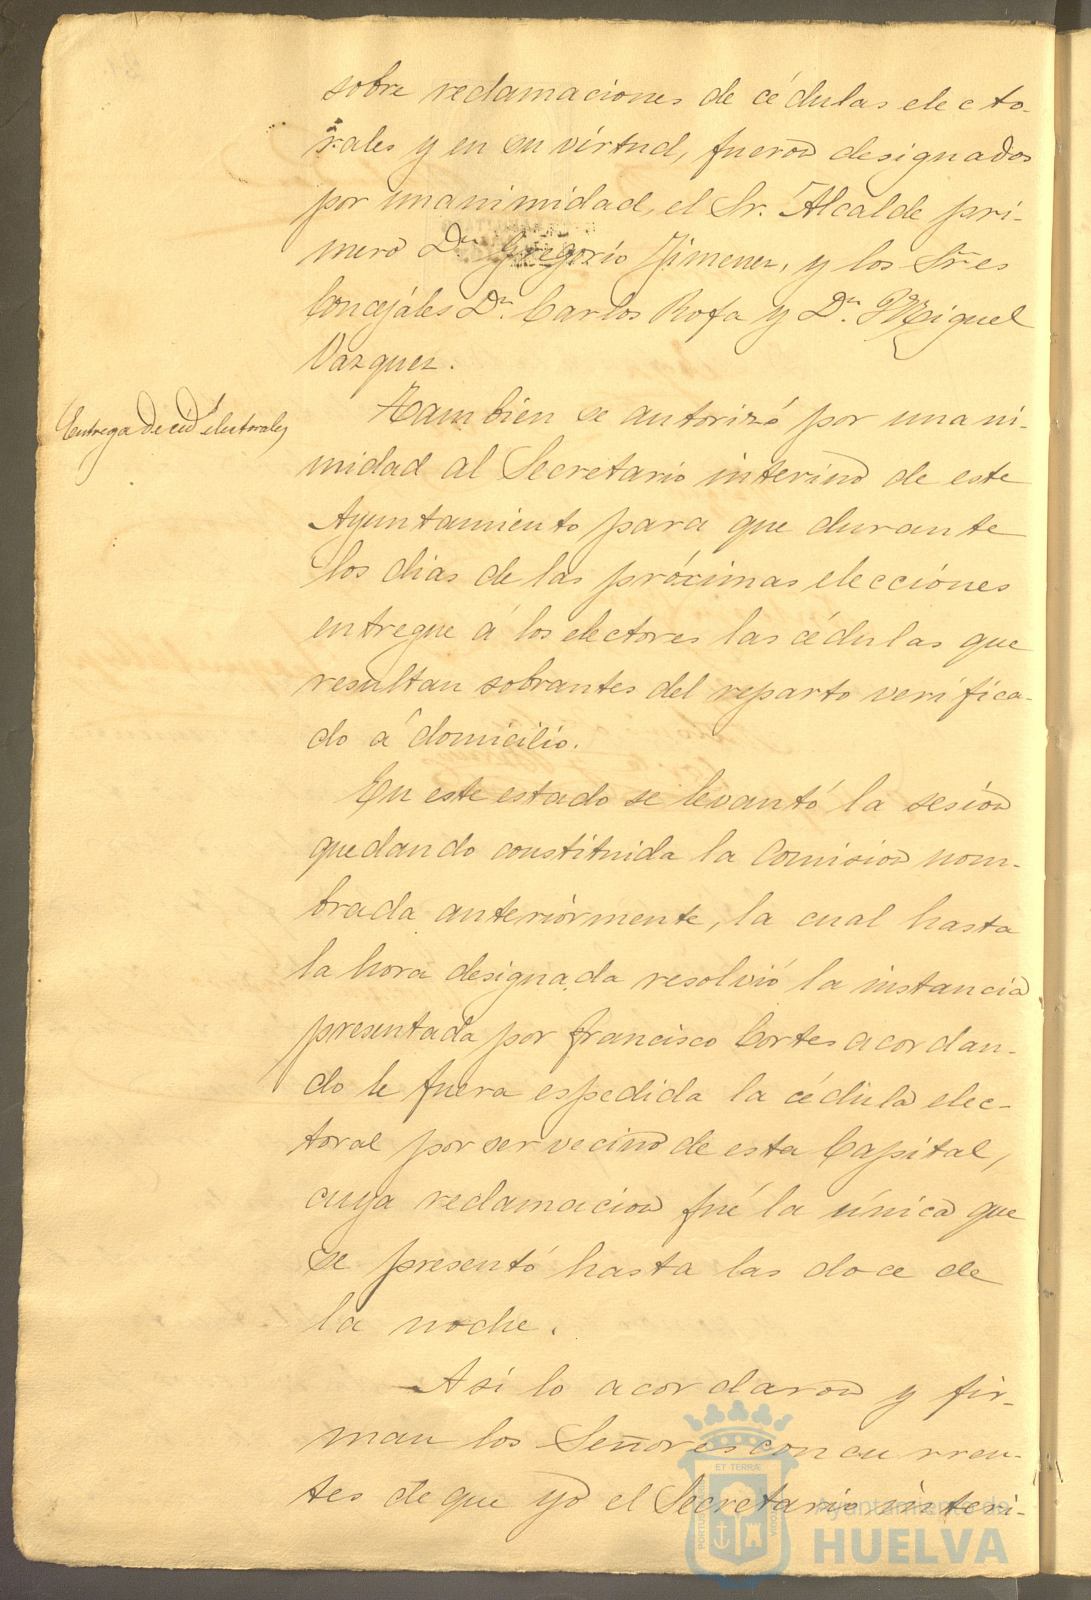 sobre reclamaciones de cédulas electo-
rales y en su virtud, fueron designados
por unanimidad, el Sr. Alcalde pri-
mero Dn. Gregorio Jimenez, y los Sres
Concejáles Dn. Carlos Rofa y Dn. Miguel
Vazquez.
Entrega de céd electorales
Tambien se autorizó por unani-
midad al Secretario interino de este
Ayuntamiento para que durante
los dias de las próximas elecciónes
entregue á los electores las cédulas que
resultan sobrantes del reparto verifica-
do á domicilio.
En este estado se levantó la sesion
quedando constituida la Comision nom-
brada anteriórmente, la cual hasta
la hora designada resolvió la instancia
presentada por Francisco Cortes acordan-
do le fuera espedida la cédula elec-
toral por ser vecino de esta Capital,
cuya reclamacion fué la única que
se presentó hasta las doce de
la noche.
Asi lo acordaron y fir-
man los Señores concurren-
tes de que yo el Secretario interi-
ET TERRÆ
PORTUS
Ayuntamiento de
HUELVA